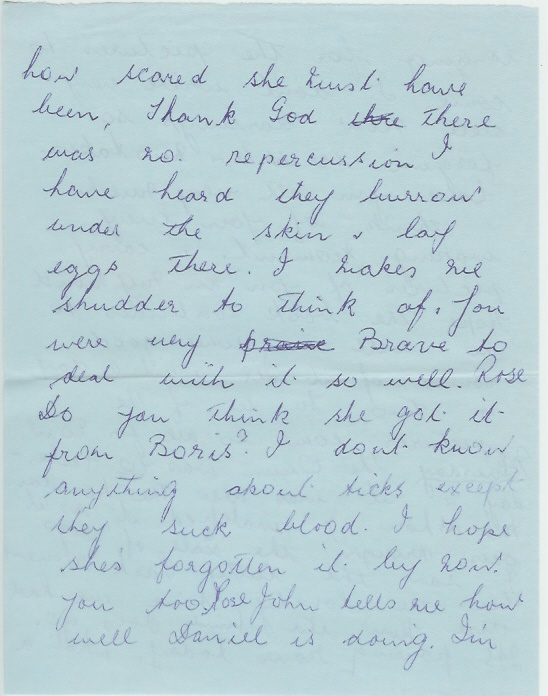 how scared she must have
been, Thank God thre there
was no. repercussion I
have heard they burrow
under the skin & lay
eggs there. I makes me
shudder to think of. You
were very praive Brave to
deal with it so well. Rose
Do you think she got it
from Boris? I dont know
anything about ticks except
they suck blood. I hope
she's forgotten it by now.
You too, Rose John tells me how
well Daniel is doing. I'm